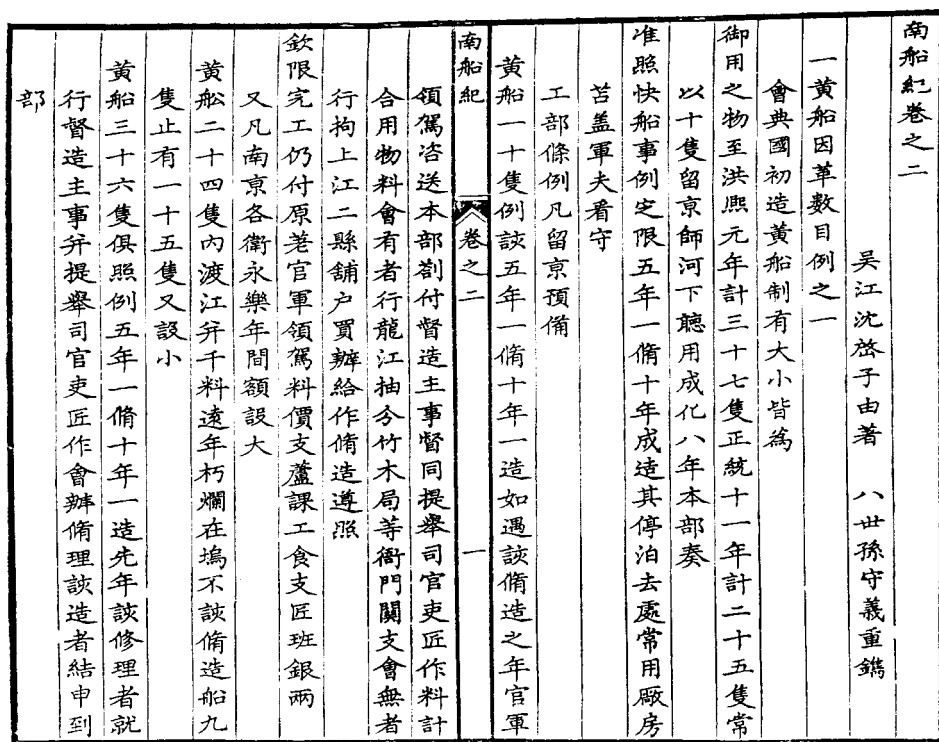 南船紀卷之二
吴江沈啓子由著　八世孫守義重鐫
一黄船因革數目例之一
會典國初造黄船制有大小皆爲
御用之物至洪熙元年計三十七隻正統十一年計二十五隻常
以十隻留京師河下聽用成化八年本部奏
准照快船事例定限五年一脩十年成造其停泊去處常用廠房
苫盖軍夫看守
工部條例凡留京預備
黄船一十隻例該五年一脩十年一造如遇該脩造之年官軍
南船紀　卷之二　一
領駕咨送本部劄付督造主事督同提舉司官吏匠作料計
合用物料會有者行龍江抽分竹木局等衙門關支會無者
行拘上江二縣舖户買辦給作脩造遵照
欽限完工仍付原差官軍領駕料價支蘆課工食支匠班銀兩
又凡南京各衛永樂年間額設大
黄舩二十四隻内渡江弁千料遠年朽爛在塢不該脩造船九
隻止有一十五隻又設小
黄船三十六隻俱照例五年一脩十年一造先年該修理者就
行督造主事弁提舉司官吏匠作會辦脩理該造者結申到
部